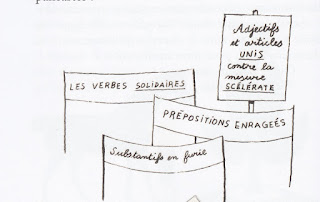 Adjectifs
et articles
UNIS
contre la
mesure
SCÉLÉRATE
LES VERBES SOLIDAIRES
PRÉPOSITIONS ENRAGEÉS
Substantifs en furie